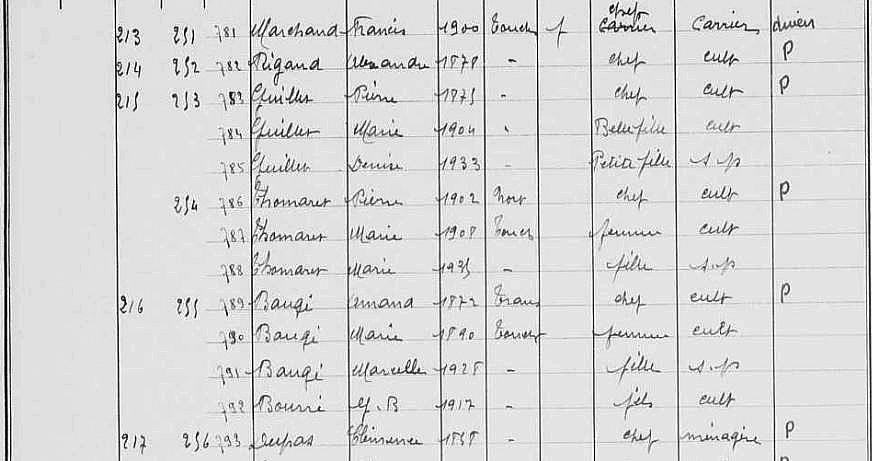 213 251 781 Marchand Francis 1900 Touches f chef Carrier Carrier divers
214 252 782 Rigaud Alexandre 1878 - chef cult P
215 253 783 Guillet Pierre 1875 - chef cult P
784 Guillet Marie 1904 " Belle fille cult
785 Guillet Denise 1933 - Petite fille s.p
254 786 Thomaret Pierre 1902 Nort chef cult P
787 Thomaret Marie 1908 Touches femme cult
788 Thomaret Marie 1935 - fille s.p
216 255 789 Baugé Armand 1872 Trans chef cult P
790 Baugé Marie 1890 Touches femme cult
791 Baugé Marcelle 1928 - fille s.p
792 Bourré J.B 1917 - fils cult
217 256 793 Dupas Clémence 1858 - chef ménagère P